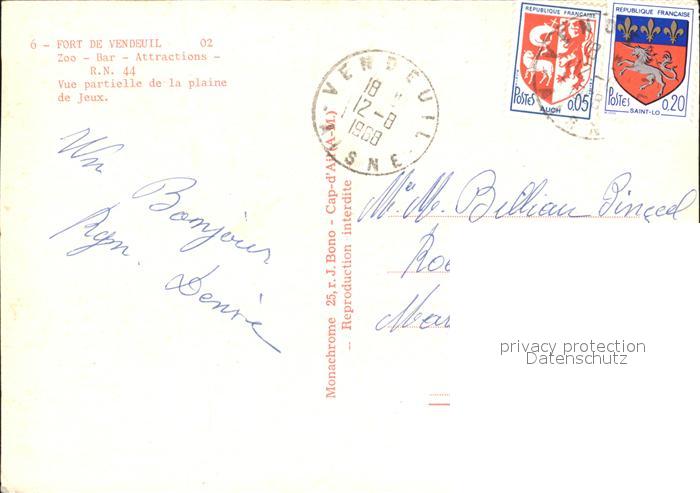 6 - FORT DE VENDEUIL 02
Zoo - Bar - Attractions -
R.N. 44
Vue partielle de la plaine
de Jeux.
Un Bonjour
Denise
VENDEUIL
18 H
12-8
1968
AISNE
Monachrome 25, r. J. Bono - Cap-d'Ail (A.-M.)
-- Reproduction interdite --
REPUBLIQUE FRANÇAISE
POSTES
AUCH
0,05
REPUBLIQUE FRANÇAISE
POSTES
SAINT-LO
0,20
privacy protection
Datenschutz